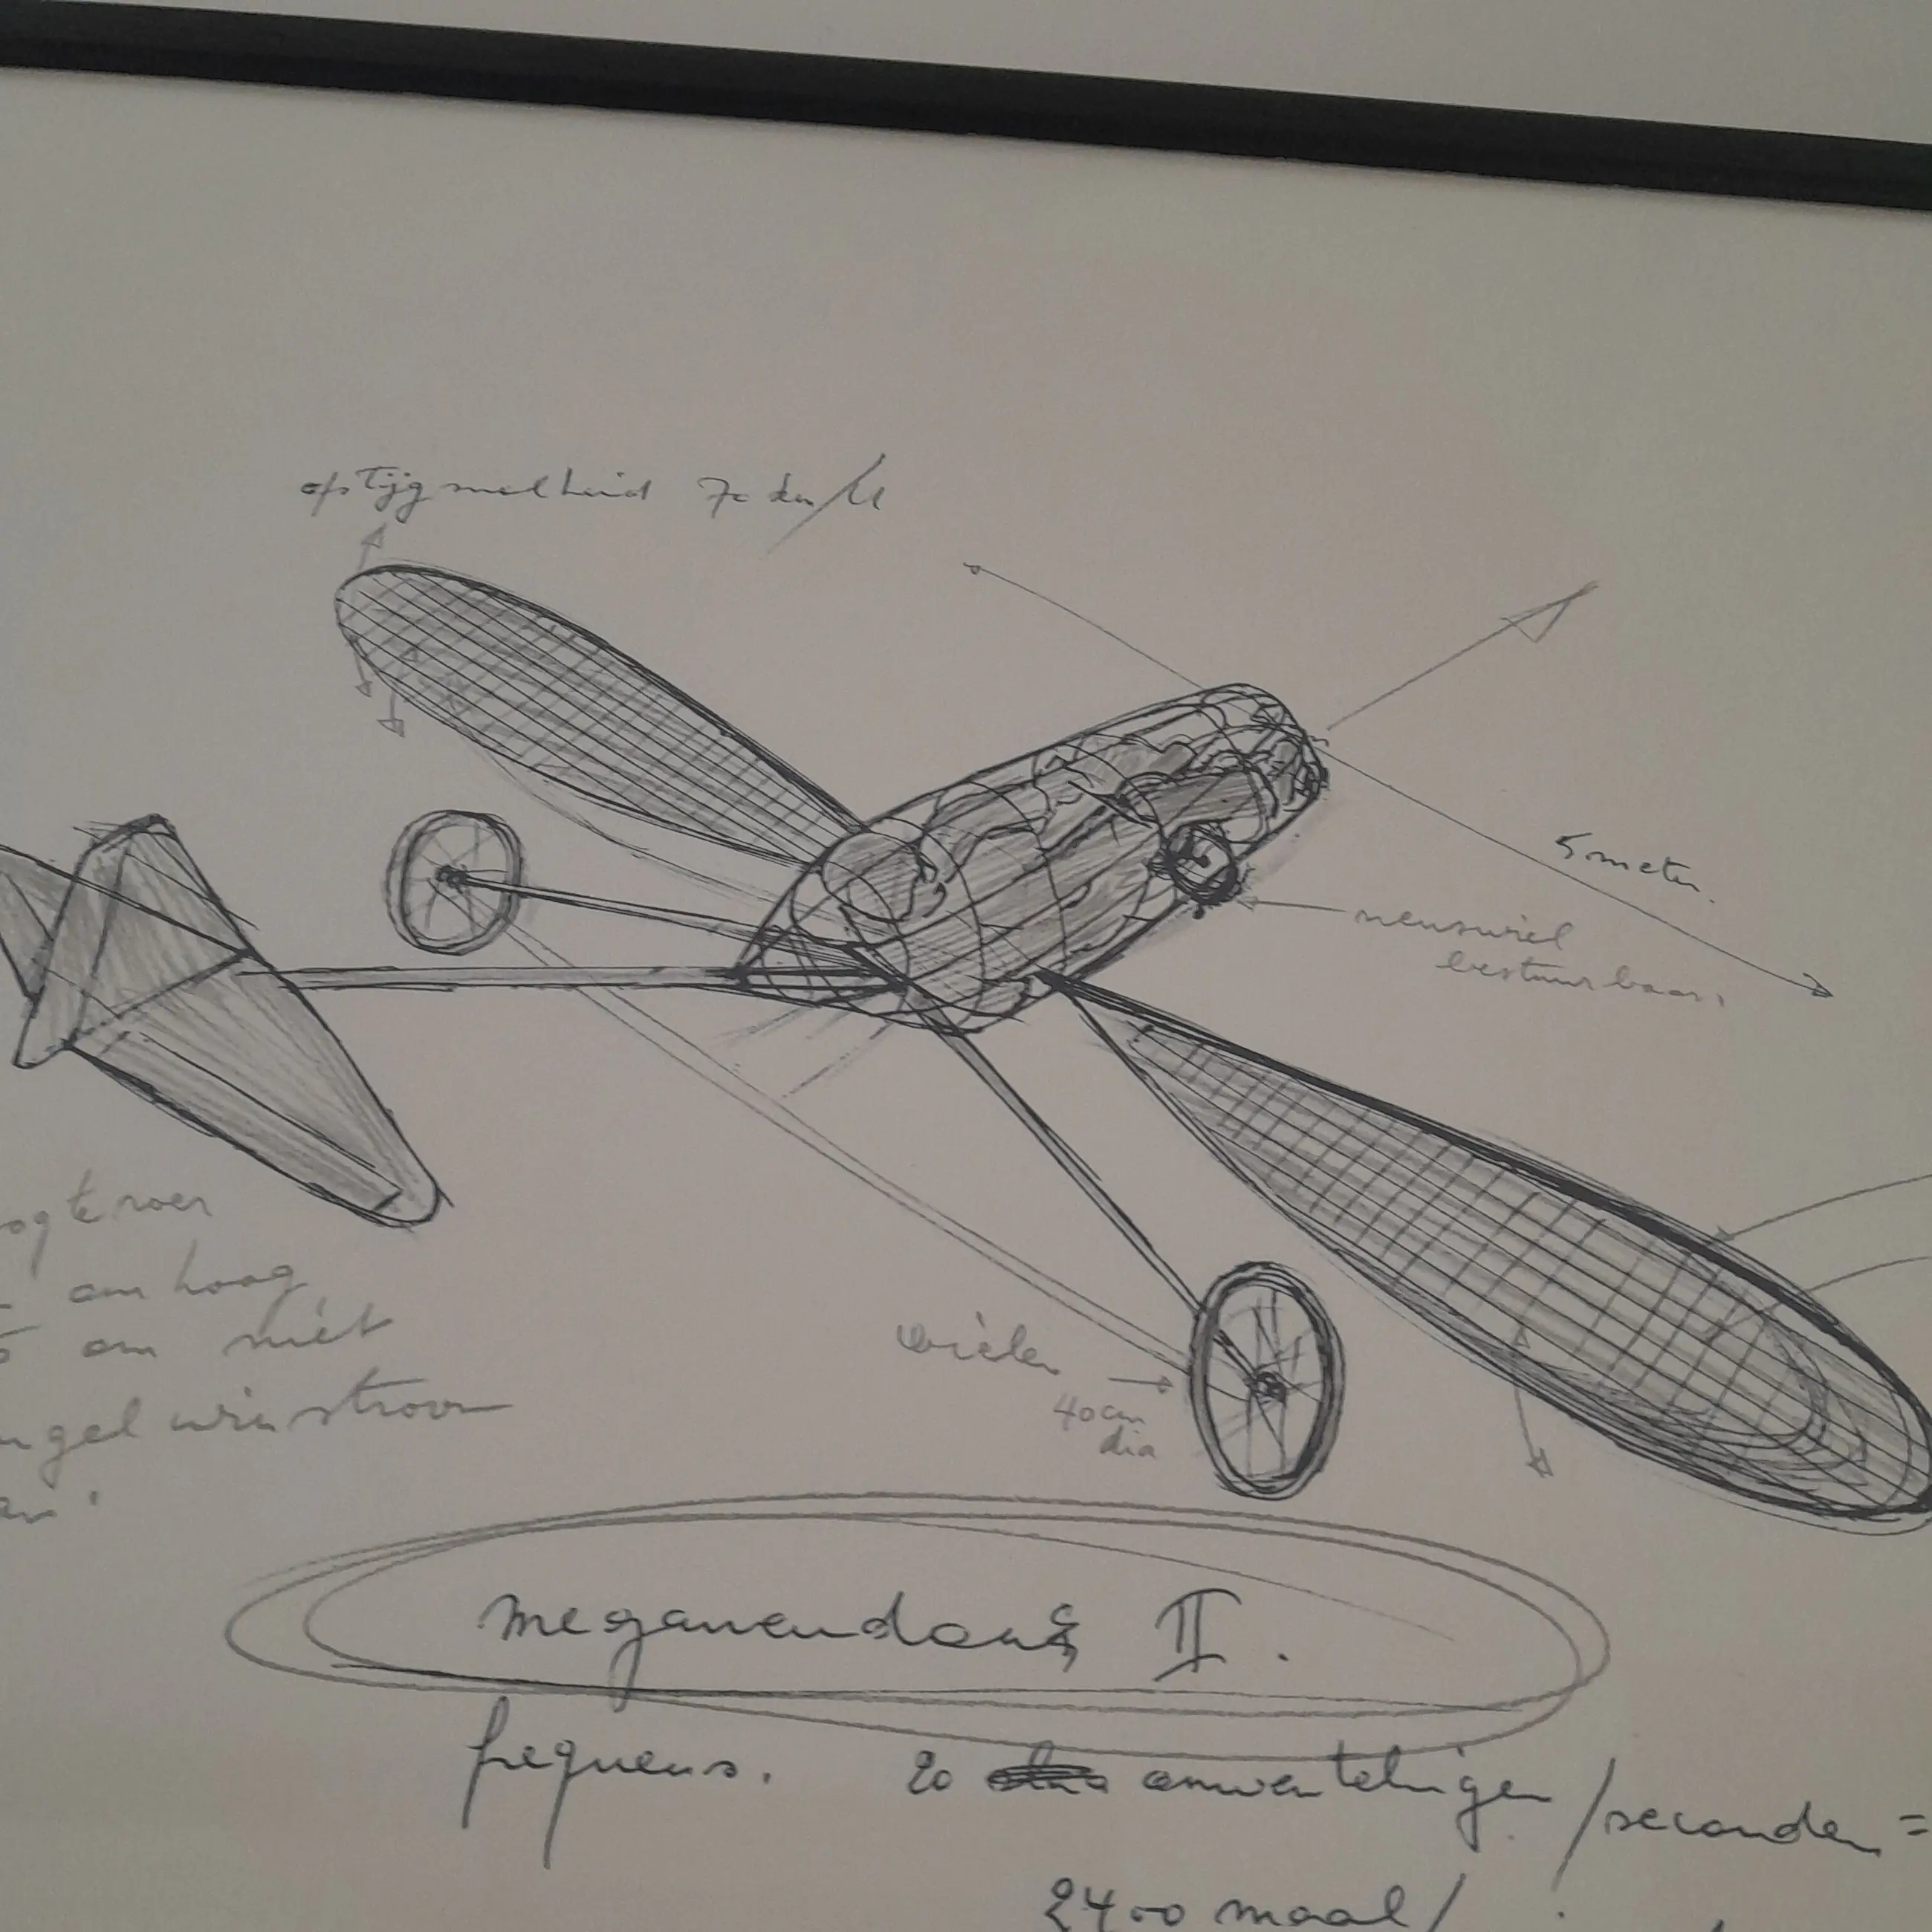 opstijgsnelheid 70 km/U
5 meter.
neuswiel
bestuurbaar.
ogte roer
omhoog
om niet
ngel windstroom
wielen
40 cm
dia
meganeudous II.
frequens. 20 omwentelingen/seconden =
2400 maal/